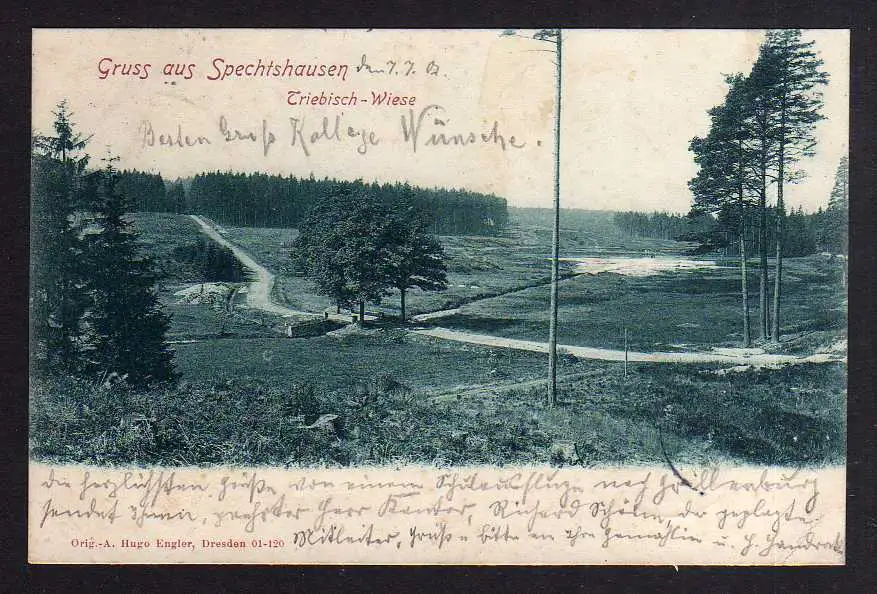 Gruss aus Spechtshausen den 7. 7. 02.
Triebisch-Wiese
Besten Gruß Kollege Wünsche.
die herzlichsten Grüße von einem Schulausfluge nach Grillenburg
sendet Ihnen, geehrter Herr Kantor, Richard Schöne, der geplagte
Mitleiter, Gruß u bitte an Ihre Gemahlin u. H.
Orig.-A. Hugo Engler, Dresden 01-120